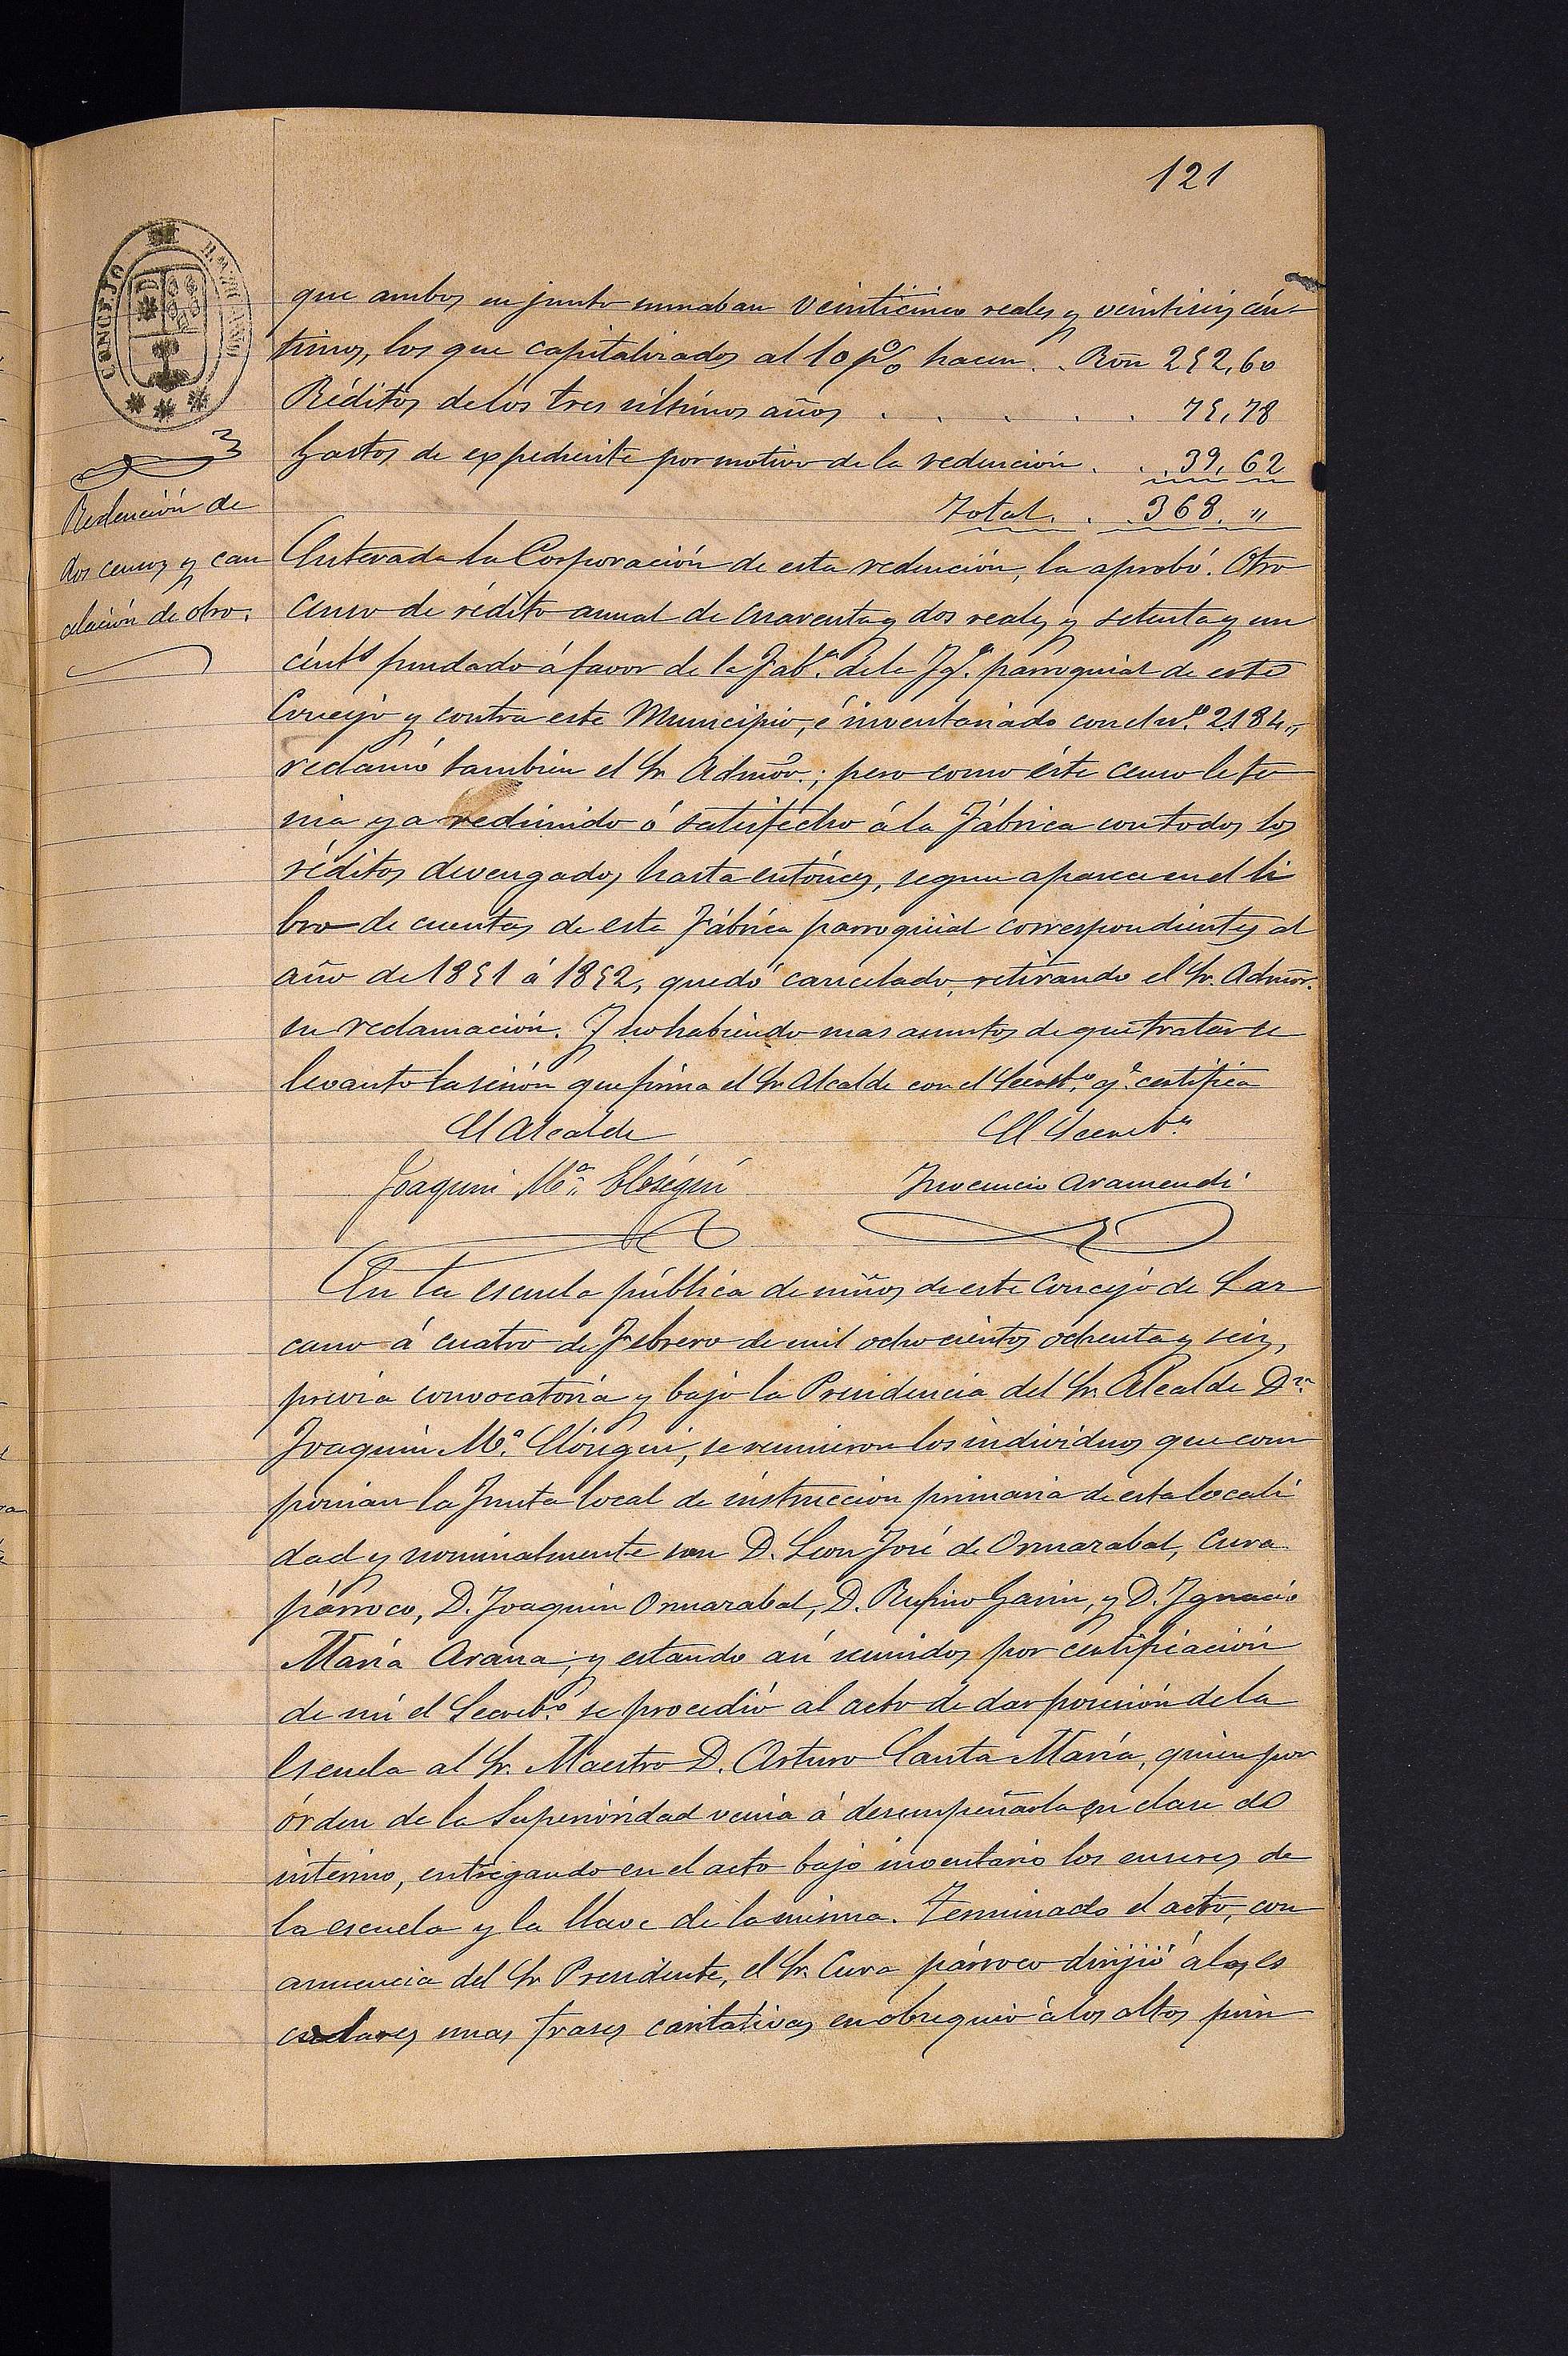 121
CONCEJO DE
que ambos en junto sumaban veinticinco reales y veintiseis cén-
timos, los que capitalizados al 10 p% hacen . . Rvn 252,60
Réditos de los tres últimos años . . . . . 75,78
Gastos de expediente por motivo de la redención . . . 39,62
Total . . . 368. "
Redención de
dos censos y can
celación de otro.
Enterada la Corporación de esta redención, la aprobó. Otro
censo de rédito anual de cuarenta y dos reales y setenta y un
cénts fundado á favor de la Fabª. de la Igª. parroquial de este
Concejo y contra este Municipio, é inventariado con el nº. 2184,,
reclamó tambien el Sr. Admõr.; pero como éste censo le te
nia ya redimido ó satisfecho á la Fábrica con todos los
réditos devengados hasta entónces, segun aparece en el li
bro de cuentas de esta Fábrica parroquial correspondientes al
año de 1851 á 1852, quedó cancelado, retirando el Sr. Admõr.
su reclamación. Y no habiendo mas asuntos de que tratar se
levantó la sesión que firma el Sr. Alcalde con el Secretº. qº. certifica
El Alcalde El Secretº
Joaquin Mª. Elósegui Inocencio Aramendi
En la escuela pública de niños de este Concejo de Laz
cano á cuatro de Febrero de mil ochocientos ochenta y seis,
previa convocatoria y bajo la Presidencia del Sr. Alcalde Dn.
Joaquin Mª. Elósegui, se reunieron los individuos que com
ponian la Junta local de instruccion primaria de esta locali
dad y nominalmente son D. Leon José de Ormazabal, Cura
párroco, D. Joaquin Ormazabal, D. Rufino Garin, y D. Ignacio
María Arana; y estando así reunidos por certificación
de mí el Secretº. se procedió al acto de dar posesión de la
Escuela al Sr. Maestro D. Arturo Santa María, quien por
órden de la Superioridad venia á desempeñarla en clase de
interino, entregando en el acto bajo inventario los enseres de
la escuela y la llave de la misma. Terminado el acto, con
anuencia del Sr. Presidente, el Sr. Cura párroco dirijió á los es
colares unas frases caritativas en obsequio á los altos prin